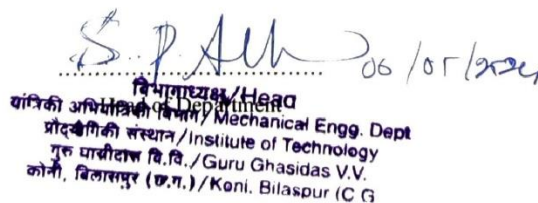 06/05/2024
विभागाध्यक्ष/Head
Head of Department
यांत्रिकी अभियांत्रिकी विभाग/Mechanical Engg. Dept
प्रौद्योगिकी संस्थान/Institute of Technology
गुरु घासीदास वि.वि./Guru Ghasidas V.V.
कोनी, बिलासपुर (छ.ग.)/Koni. Bilaspur (C G